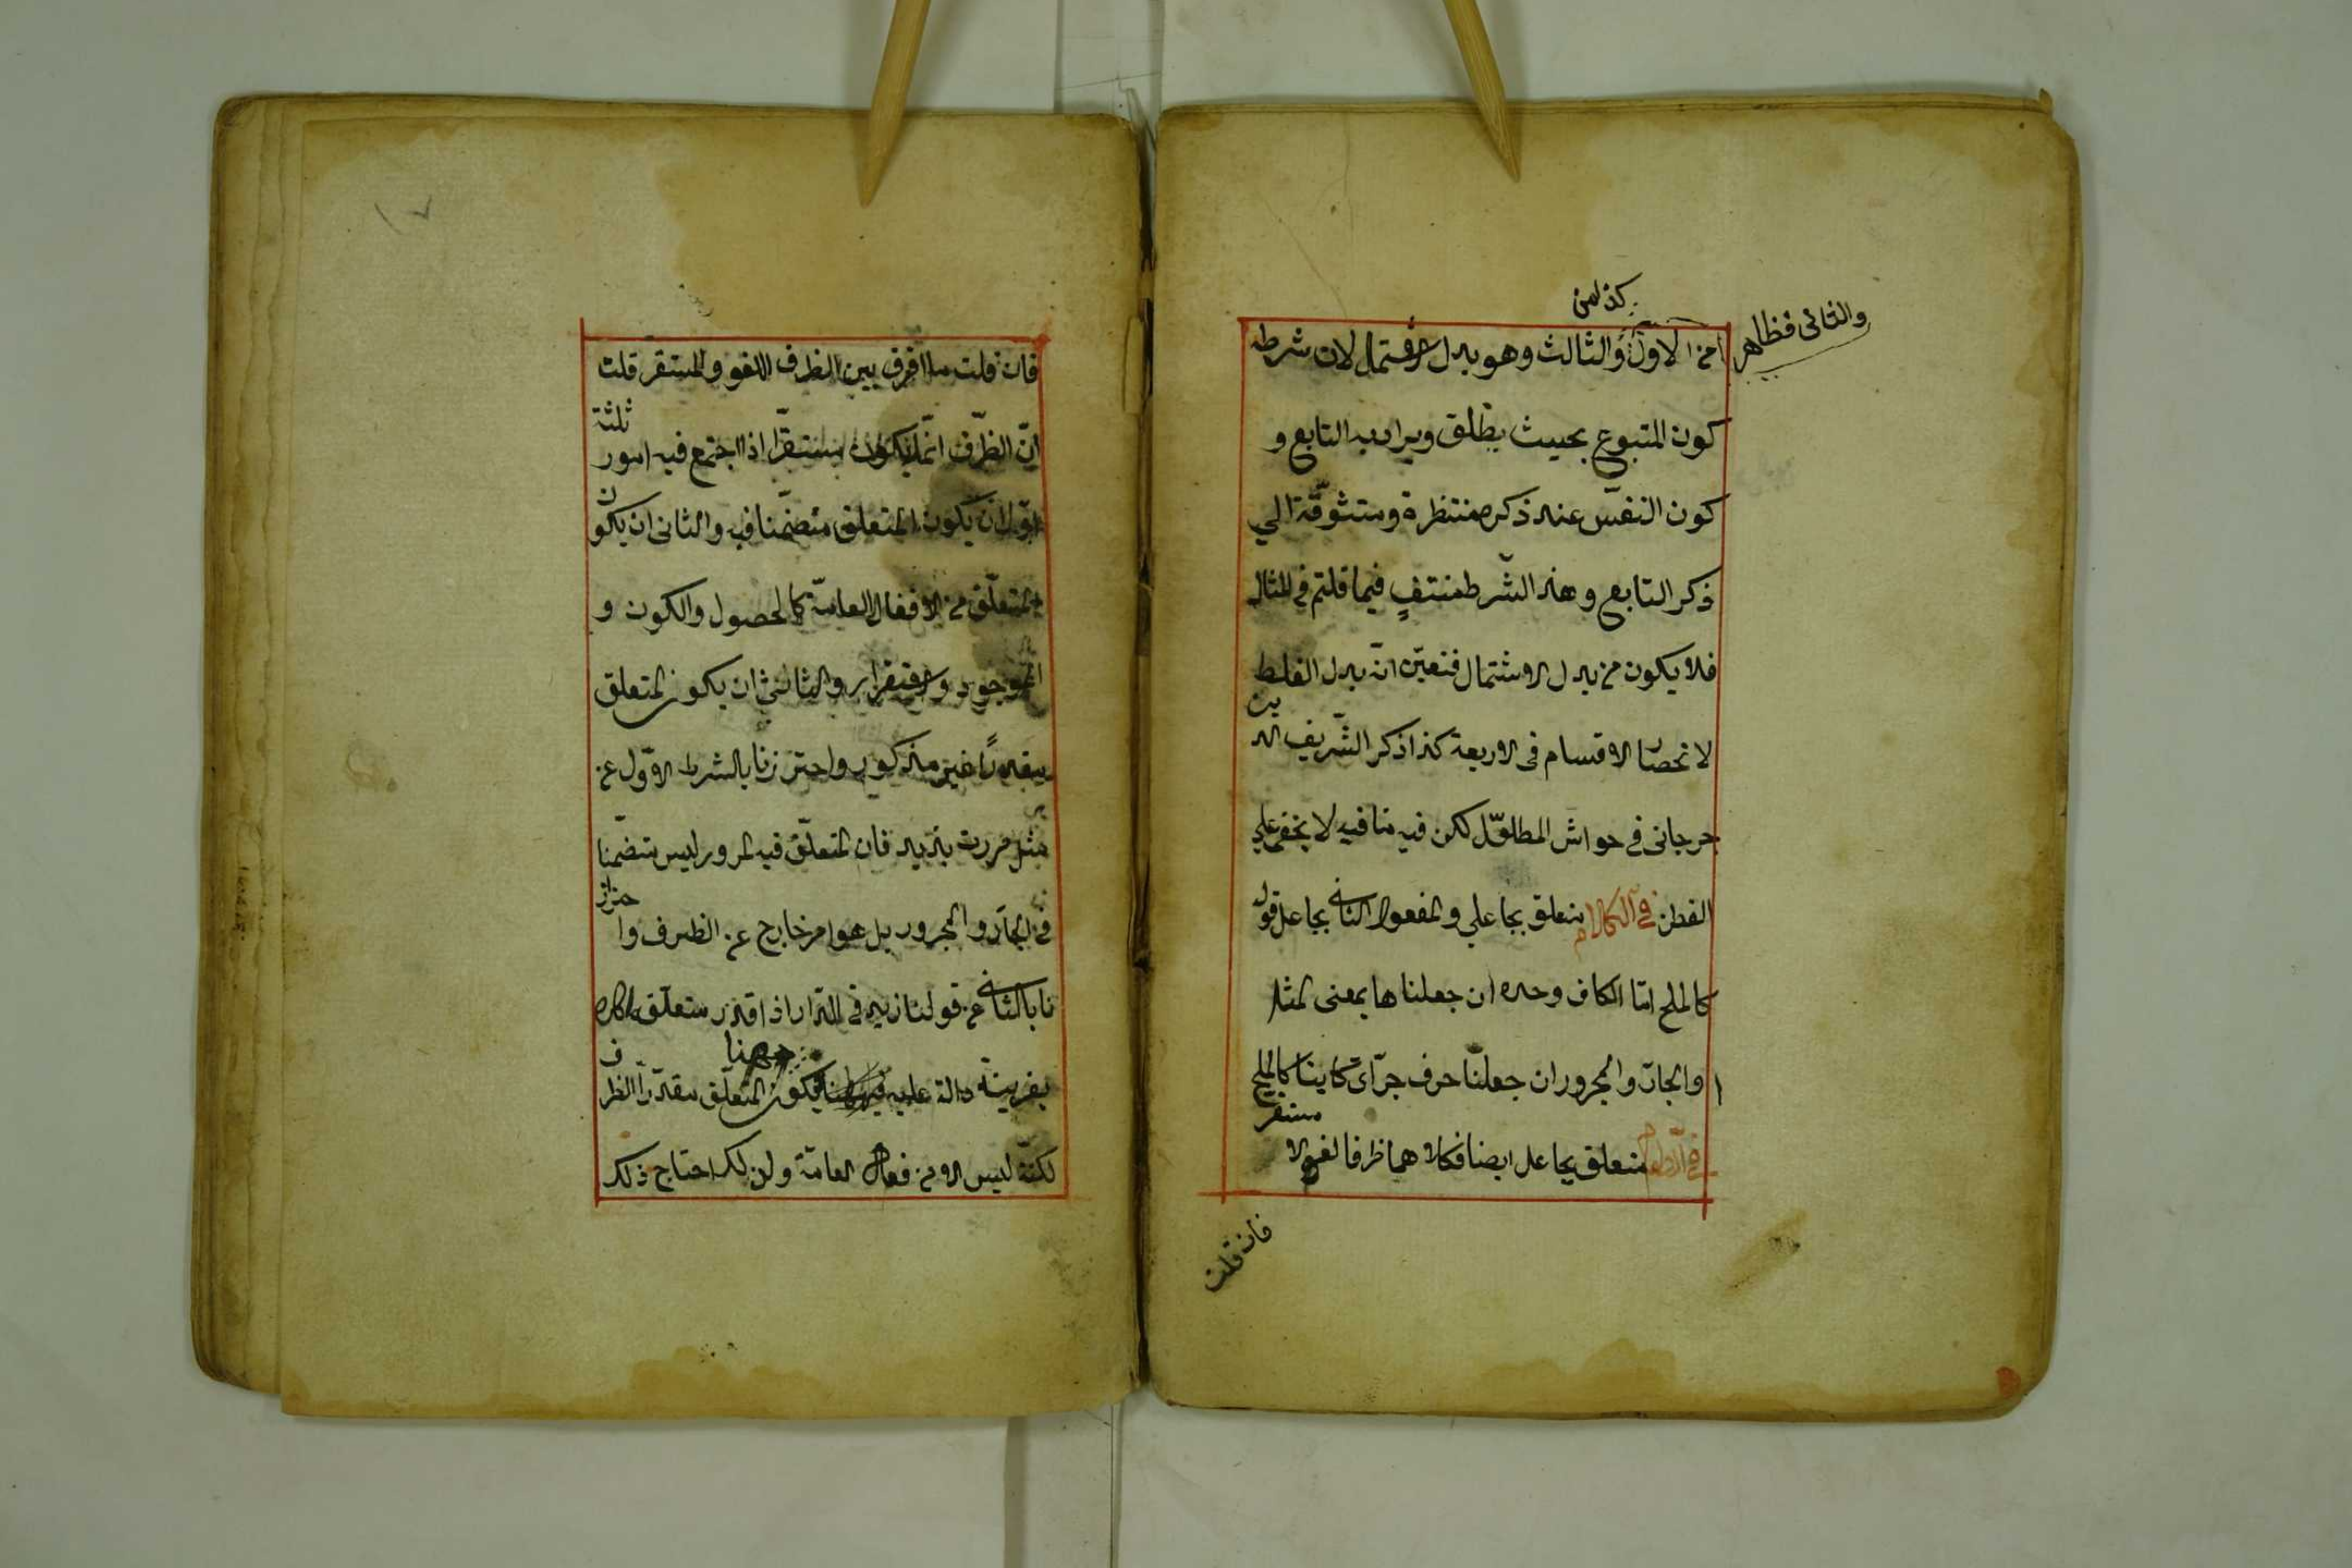 والثانى فظاهر
كذلمن
امن الاول والثالث وهو بدل الاشتمال لان شرطه
كون المتبوع بحيث يطلق ويراد به التابع و
كون النفس عند ذكره منتظرة ومتشوقة الي
ذكر التابع وهذ الشرط منتفٍ فيما قلتم فى المثال
فلا يكون من بدل الاشتمال فتعين انه بدل الغلط
لانحصار الاقسام فى الاربعة كذا ذكر الشريف الدين
جرجانى فى حواش المطلوّل لكن فيه منافيه لا يخفى على
الفطن فى الكلام متعلق بجاعلي والمفعول الثانى بجاعل قوله
كالملح امّا الكاف وحده ان جعلناها بمعنى المثل
او الجارّ والمجرور ان جعلنا حرف جرّ اى كاينا كالملح
فى الطعام متعلق بجاعل ايضا فكلاهما ظرفا لغو لا مستقر
فان قلت
١٧
فان قلت ما الفرق بين الظرف اللغو والمستقر قلت
انّ الظرف انّما يكون مستقرّا اذا اجتمع فيه امور ثلثة
الاوّل ان يكون المتعلق متضمّنا فيه والثانى ان يكون
المتعلّق من الافعال العامّة كالحصول والكون و
الموجود والاستقرار والثالث ان يكون المتعلق
مقدرًا غير مذكور واحترزنا بالشرط الاوّل عن
مثل مررت بزيد فان المتعلّق فيه المرور ليس متضمّنا
فى الجارّ والمجرور بل هو امر خارج عن الظرف واحتراز
نا بالثانى عن قولنا زيد فى الدّار اذا قدّر متعلّق
بقرينة دالة عليه فههنا يكون المتعلّق مقدّرا الظرف
لكنّه ليس الا من فعال العامّة ولذلك احتاج ذلك